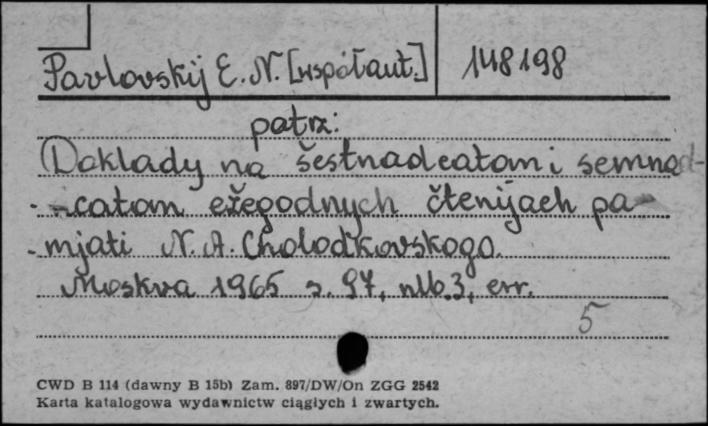 Pavlovskij E. N. [współaut.] 148198
patrz:
Doklady na šestnadcatom i semnad-
-catom ežegodnych čtenijach pa-
-mjati N. A. Cholodkovskogo.
Moskva 1965 s. 97, nlb. 3, err.
5
CWD B 114 (dawny B 15b) Zam. 897/DW/On ZGG 2542
Karta katalogowa wydawnictw ciągłych i zwartych.